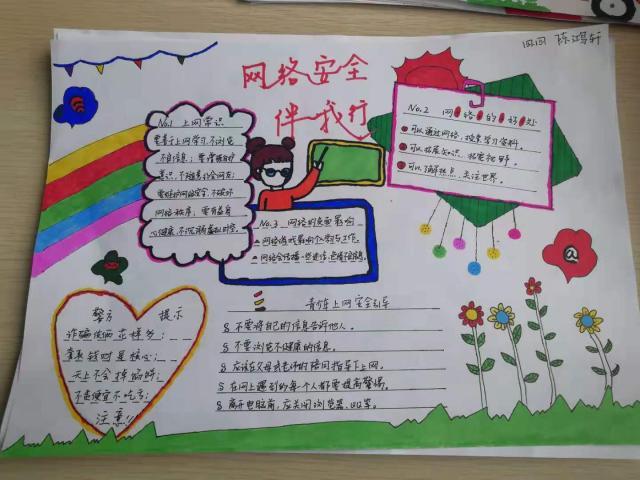 网络安全
伴我行
四(1) 陈鸿轩
No.1 上网常识
要善于上网学习,不浏览
不良信息;要增强自护
意识,不随意约会网友;
要维护网络安全,不破坏
网络秩序;要有益身
心健康,不沉溺虚拟时空。
No.2 网络的好处
可以通过网络,搜索学习资料。
可以拓展知识,拓宽视野。
可以了解热点,关注世界。
No.3 网络的负面影响
网络游戏影响个学习工作。
警方 提示
诈骗伎俩花样多;
套表钱财是核心;
天上不会掉馅饼;
不走便宜不吃亏;
注意!!
青少年上网安全引导
§ 不要将自己的信息告诉他人。
§ 不要浏览不健康的信息。
§ 应该在父母或老师的陪同指导下上网。
§ 在网上遇到的每个人都要提高警惕。
§ 离开电脑前,应关闭浏览器、QQ等。